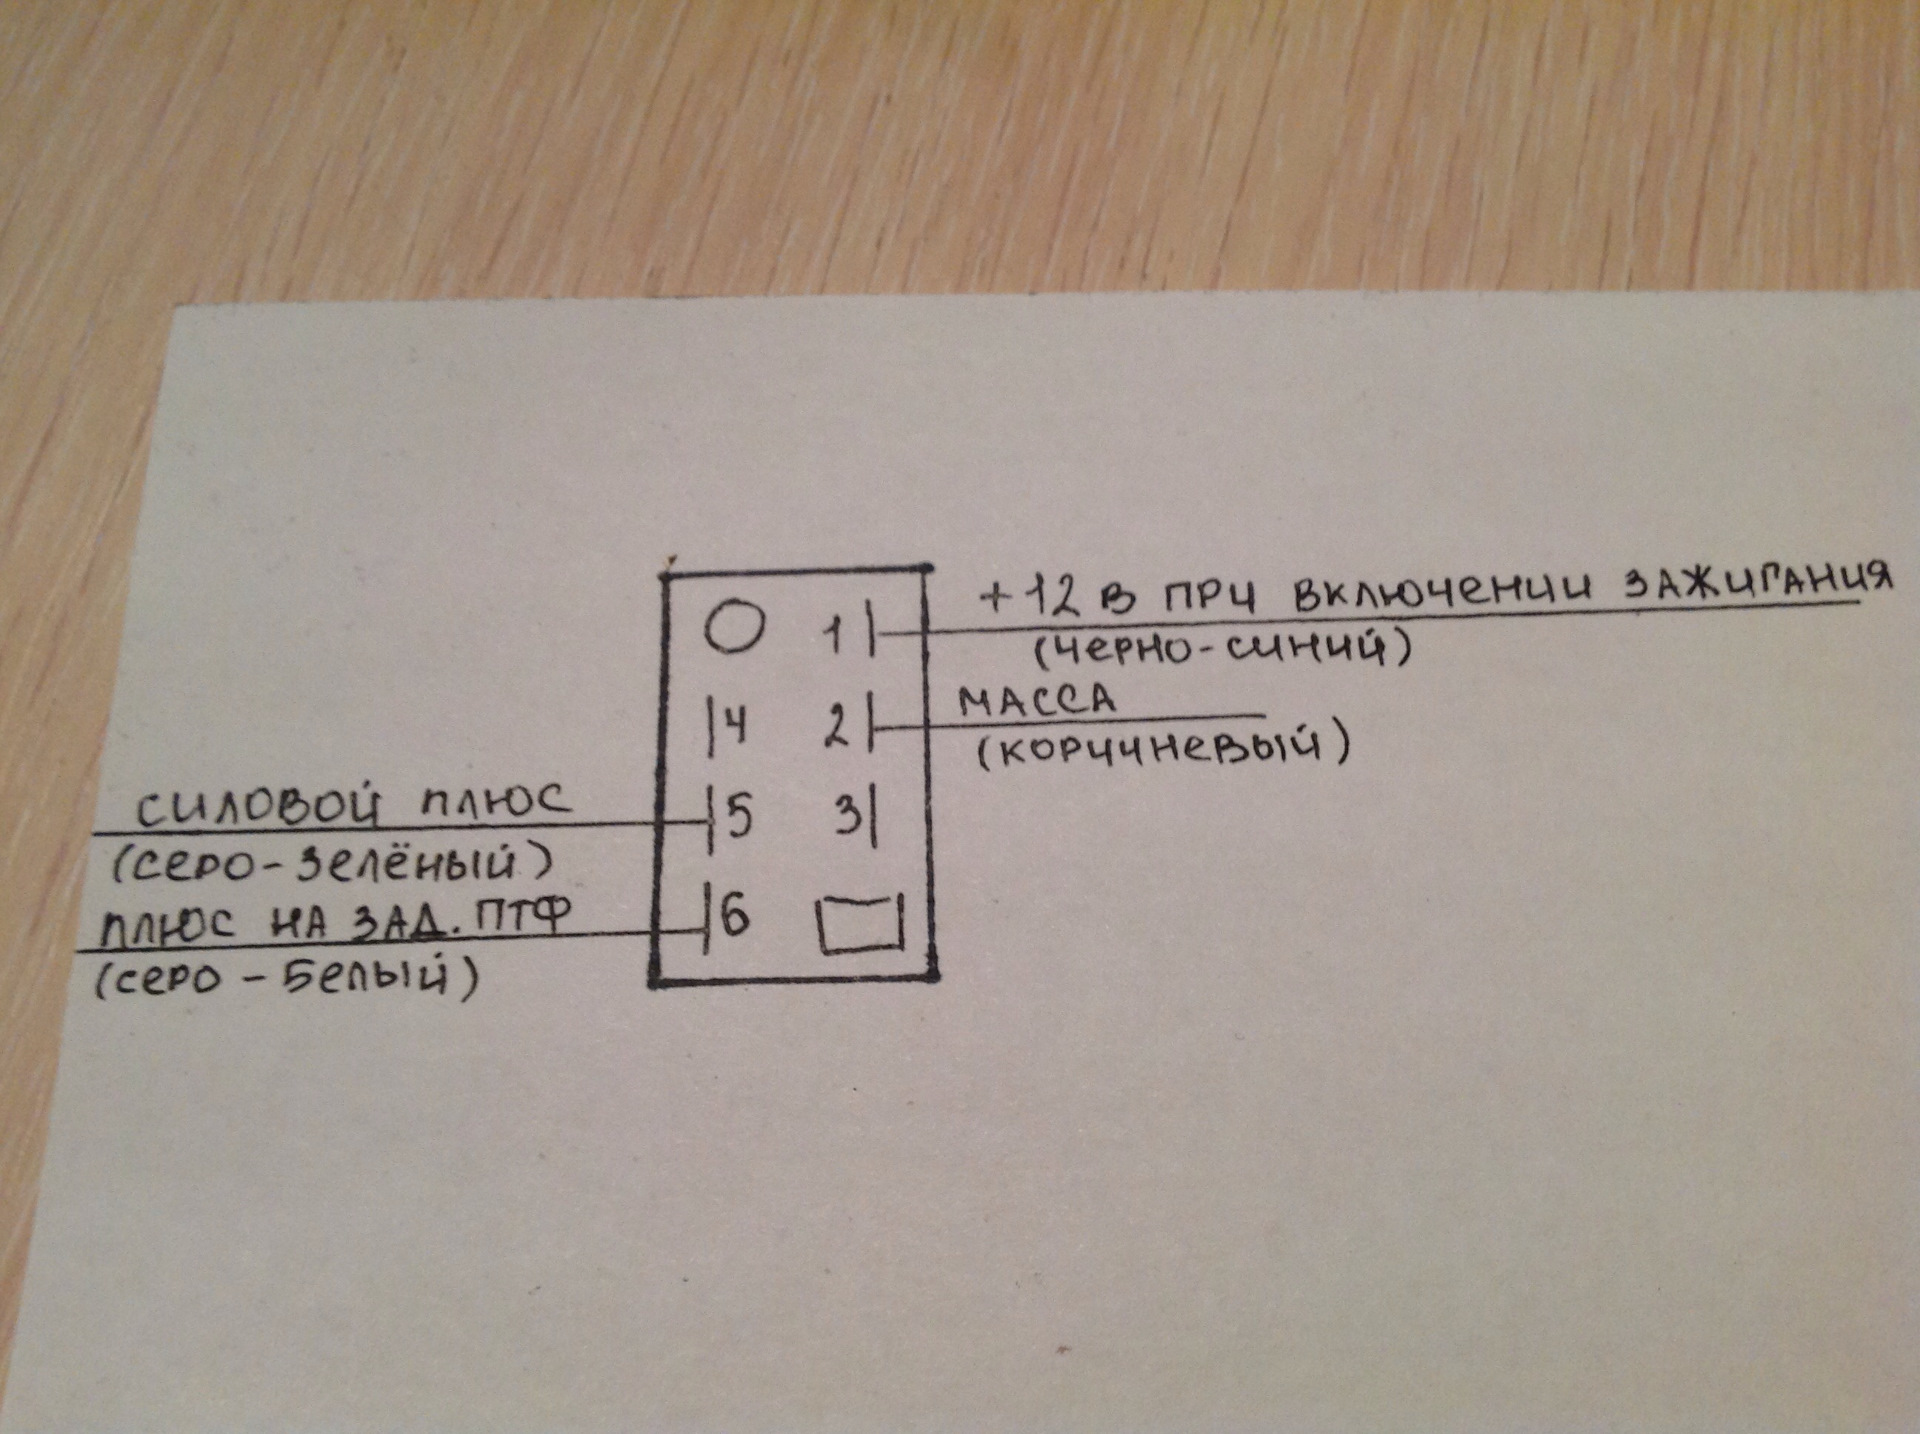 +12 В ПРИ ВКЛЮЧЕНИИ ЗАЖИГАНИЯ
1
(ЧЕРНО-СИНИЙ)
МАССА
4 2
(КОРИЧНЕВЫЙ)
СИЛОВОЙ ПЛЮС
5 3
(СЕРО-ЗЕЛЁНЫЙ)
ПЛЮС НА ЗАД. ПТФ
6
(СЕРО-БЕЛЫЙ)